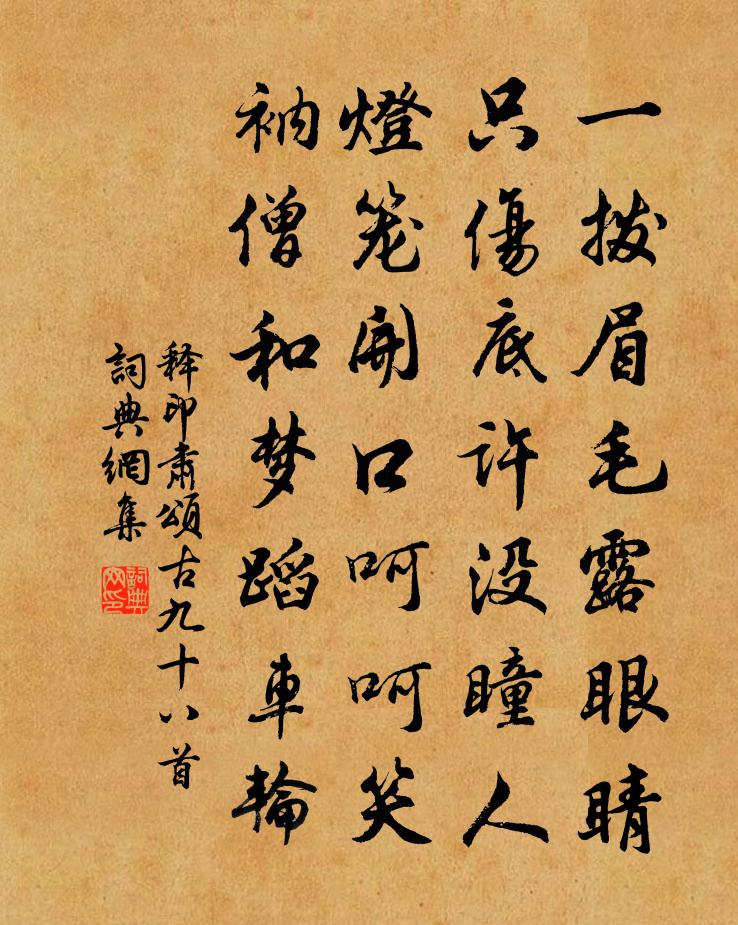 一拨眉毛露眼睛
只傷底许没瞳人
燈笼開口呵呵笑
衲僧和梦蹈車輪
释印肃頌古九十八首
詞典網集
詞典网印